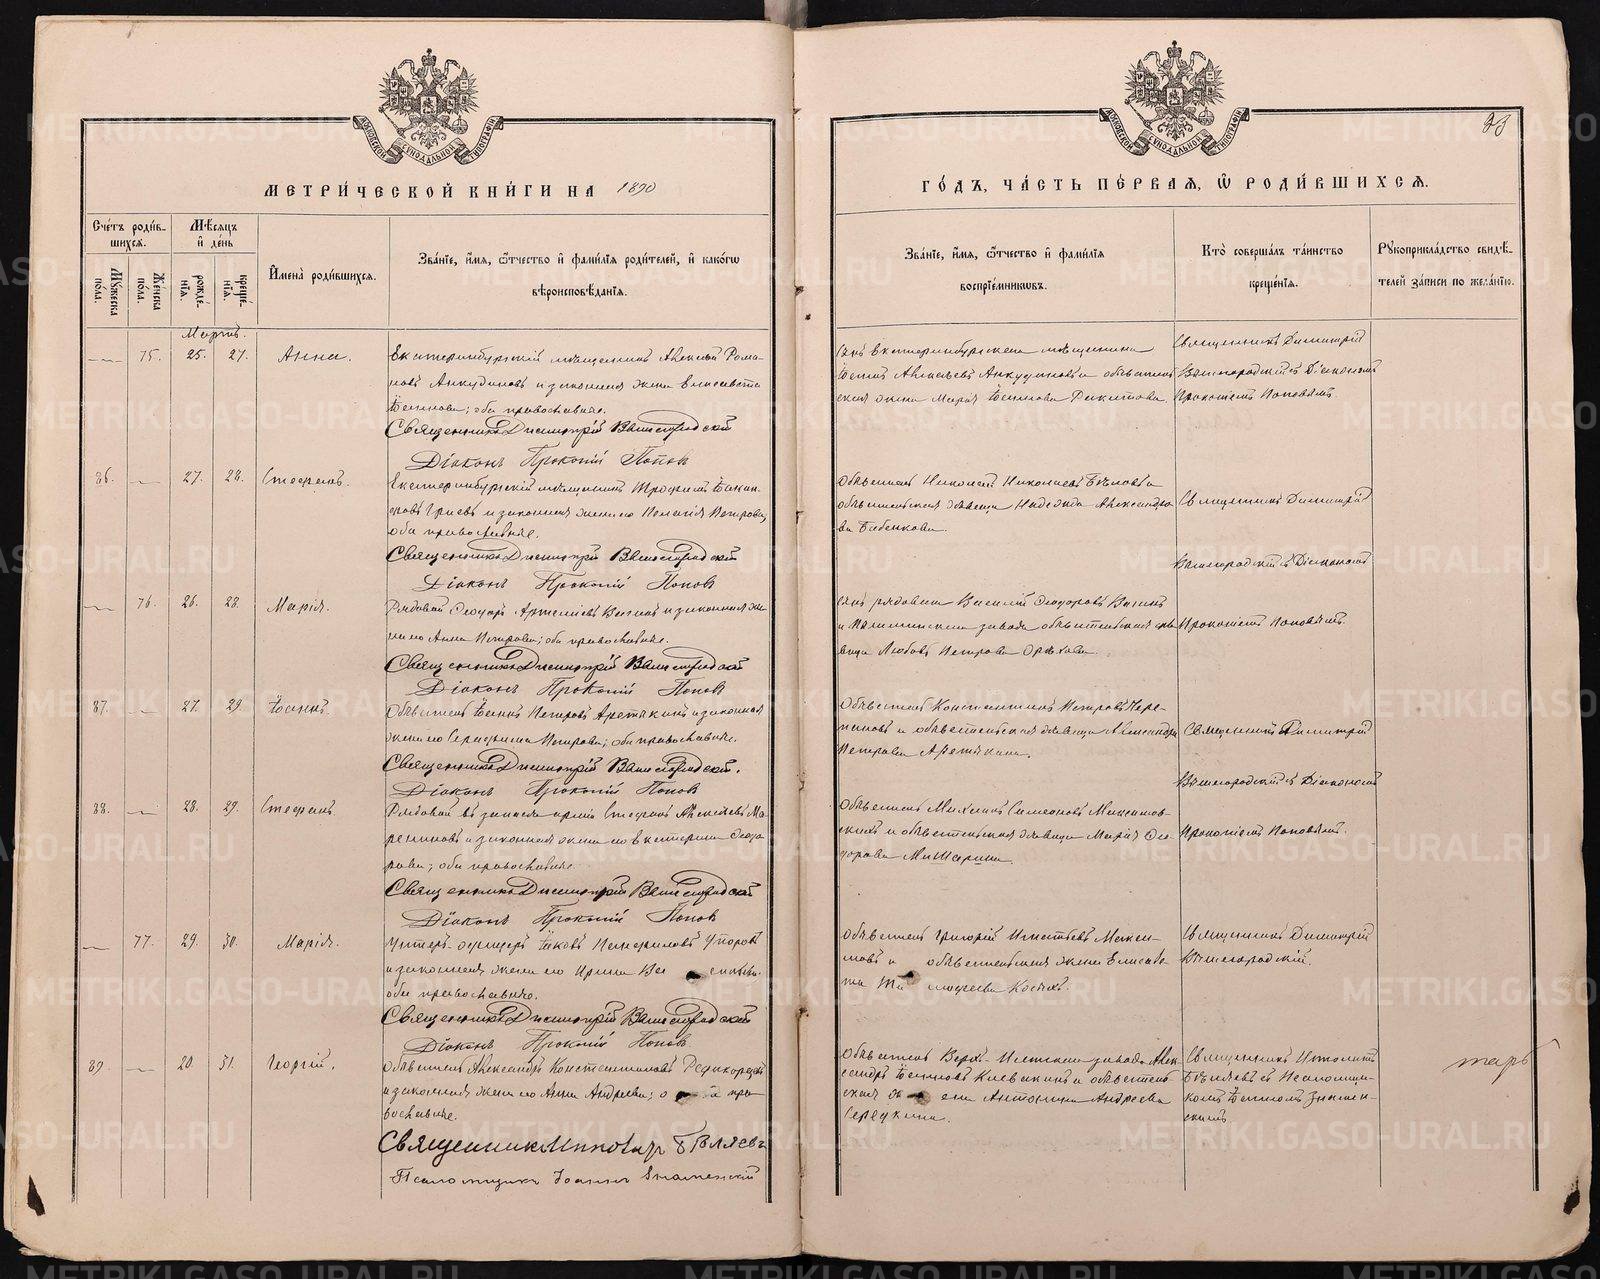 МЕТРИ́ЧЕСКОЙ КНИ́ГИ НА 1890
Сче́тъ роди́в-
шихсѧ.
Мѣ́сѧцъ
и҆ де́нь
Мꙋ́жеска
по́ла.
Же́нска
по́ла.
рожде́-
нїѧ.
креще́-
нїѧ.
И҆мена̀ роди́вшихсѧ.
Зва́нїе, и҆́мѧ, ѻ҆́тчество и҆ фами́лїѧ роди́телей, и҆ како́гѡ
вѣроисповѣ́данїѧ.
Мартъ.
75. 25. 27. Анна.
Екатеринбургскій мѣщанинъ Алексѣй Рома-
новъ Анкудиновъ и законная жена Елисавета
Іоаннова; оба православные.
Священникъ Димитрій Вышегородскій
Діаконъ Прокопій Поповъ
86. 27. 28. Стефанъ.
Екатеринбургскій мѣщанинъ Трофимъ
и законная жена его Пелагія Петрова,
оба православные.
Священникъ Димитрій Вышегородскій
Діаконъ Прокопій Поповъ
76. 26. 28. Марія.
Рядовой Ѳеодоръ Артемьевъ Вагинъ и законная же-
на его Анна Петрова; оба православные.
Священникъ Димитрій Вышегородскій
Діаконъ Прокопій Поповъ
87. 27. 29. Іоаннъ.
Обыватель Іоаннъ Петровъ и законная
жена его Серафима Петрова; оба православные.
Священникъ Димитрій Вышегородскій.
Діаконъ Прокопій Поповъ
88. 28. 29. Стефанъ
Рядовой въ запасѣ арміи Стефанъ Алексѣевъ Ма-
и законная жена его Екатерина Ѳеодо-
рова; оба православные
Священникъ Димитрій Вышегородскій
Діаконъ Прокопій Поповъ
77. 29. 30. Марія.
Унтеръ-офицеръ Іаковъ Панфиловъ Упоровъ
и законная жена его Ирина
оба православные.
Священникъ Димитрій Вышегородскій
Діаконъ Прокопій Поповъ
89. 20. 31. Георгій.
Обыватель Александръ Константиновъ Редикорцевъ
и законная жена его Анна Андреева; пра-
вославные.
Священникъ Ипполитъ Бѣляевъ
Псаломщикъ Іоаннъ Знаменскій
23
ГО́ДЪ, ЧА́СТЬ ПЕ́РВАѦ, Ѿ РОДИ́ВШИХСѦ.
Зва́нїе, и҆́мѧ, ѻ҆́тчество и҆ фами́лїѧ
воспрїе́мникѡвъ.
Кто̀ соверша́лъ та́инство
креще́нїѧ.
Рꙋкоприкла́дство свидѣ́-
телей за́писи по жела́нїю.
Сынъ Екатеринбургскаго мѣщанина
Алексѣевъ Анкудиновъ и обыватель-
ская жена Марія Іоаннова Рахитова.
Священникъ Димитрій
Вышегородскій съ Діакономъ
Прокопіемъ Поповымъ
Обыватель Николай Николаевъ Бѣловъ и
обывательская дѣвица Надежда Александро-
ва Бабенкова.
Священникъ Димитрій
Вышегородскій съ Діакономъ
Прокопіемъ Поповымъ
Сынъ рядоваго Василій Ѳеодоровъ Вагинъ
и завода обывательская дѣ-
вица Любовь Петрова Орѣхова.
Обыватель Константинъ Петровъ Чере-
пановъ и обывательская дѣвица Александра
Петрова
Священникъ Димитрій
Вышегородскій съ Діакономъ
Прокопіемъ Поповымъ.
Обыватель Михаилъ Симеоновъ Максимов-
скихъ и обывательская дѣвица Марія Ѳео-
дорова Мишарина.
Обыватель Григорій Игнатьевъ
и обывательская жена Елисаве-
та
Священникъ Димитрій
Вышегородскій.
Обыватель Верхъ-Исетскаго завода Алек-
сандръ Іоанновъ и обыватель-
ская Антонина Андреева
Середкина.
Священникъ Ипполитъ
Бѣляевъ съ Псаломщи-
комъ Іоанномъ Знамен-
скимъ
METRIKI.GASO-URAL.RU